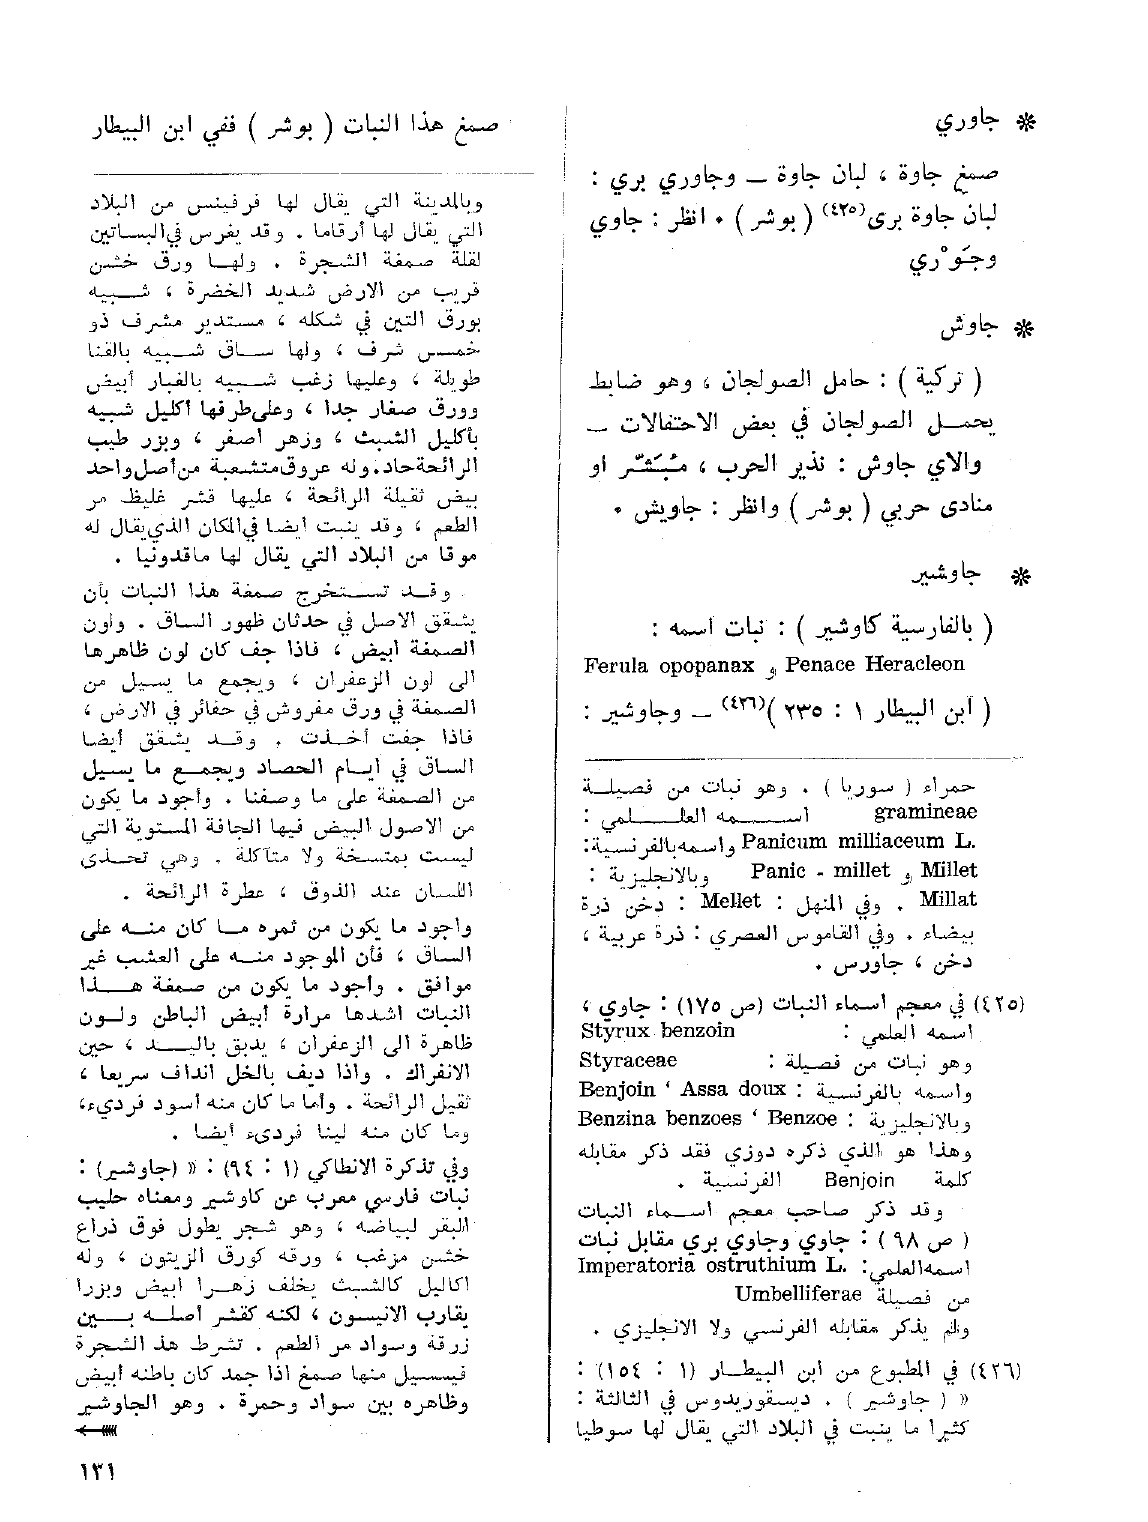 * جاوري
صمغ جاوة ، لبان جاوة — وجاوري بري :
لبان جاوة بري(٤٢٥) ( بوشر ) ٠ انظر : جاوي
وجَوْري
* جاوش
( تركية ) : حامل الصولجان ، وهو ضابط
يحمـــل الصولجان في بعض الاحتفالات —
والاي جاوش : نذير الحرب ، مُبَشّر او
منادى حربي ( بوشر ) وانظر : جاويش ٠
* جاوشير
( بالفارسية كاوشير ) : نبات اسمه :
Ferula opopanax و Penace Heracleon
( ابن البيطار ١ : ٢٣٥ )(٤٢٦) — وجاوشير :
صمغ هذا النبات ( بوشر ) ففي ابن البيطار
حمراء ( سوريا ) . وهو نبات من فصيلــة
gramineae اســـــمه العلـــــمي :
Panicum milliaceum L. واسمه بالفرنسية:
Millet و Panic - millet وبالانجليزية :
Millat . وفي المنهل : Mellet : دخن ذرة
بيضاء . وفي القاموس العصري : ذرة عربية ،
دخن ، جاورس .
(٤٢٥) في معجم اسماء النبات (ص ١٧٥) : جاوي ،
اسمه العلمي : Styrux benzoin
وهو نبات من فصيلة : Styraceae
واسمه بالفرنسية : Benjoin ‘ Assa doux
وبالانجليزية : Benzina benzoes ‘ Benzoe
وهذا هو الذي ذكره دوزي فقد ذكر مقابله
كلمة Benjoin الفرنسية .
وقد ذكر صاحب معجم اســماء النبات
( ص ٩٨ ) : جاوي وجاوي بري مقابل نبات
اسمه العلمي: Imperatoria ostruthium L.
من فصيلة Umbelliferae
ولم يذكر مقابله الفرنسي ولا الانجليزي .
(٤٢٦) في المطبوع من ابن البيطــار (١ : ١٥٤) :
« ( جاوشير ) . ديسقوريدوس في الثالثة :
كثيرا ما ينبت في البلاد التي يقال لها سوطيا
وبالمدينة التي يقال لها فرفينس من البلاد
التي يقال لها أرقاما . وقد يغرس في البساتين
لقلة صمغة الشجرة . ولهــا ورق خشن
قريب من الارض شديد الخضرة ، شـــبيه
بورق التين في شكله ، مستدير مشرف ذو
خمس شرف ، ولها ســاق شــبيه بالقنا
طويلة ، وعليها زغب شــبيه بالغبار أبيض
وورق صغار جدا ، وعلى طرفها أكليل شبيه
بأكليل الشبث ، وزهر أصفر ، وبزر طيب
الرائحة حاد، وله عروق متشعبة من أصل واحد
بيض ثقيلة الرائحة ، عليها قشر غليظ مر
الطعم ، وقد ينبت أيضا في المكان الذي يقال له
موقا من البلاد التي يقال لها ماقدونيا .
وقــد تســتخرج صمغة هذا النبات بأن
يشقق الاصل في حدثان ظهور الساق . ولون
الصمغة ابيض ، فاذا جف كان لون ظاهرها
الى لون الزعفران ، ويجمع ما يسيل من
الصمغة في ورق مفروش في حفائر في الارض ،
فاذا جفت أخــذت . وقــد يشقق أيضا
الساق في أيــام الحصاد ويجمــع ما يسيل
من الصمغة على ما وصفنا . وأجود ما يكون
من الاصول البيض فيها الجافة المستوية التي
ليست بمتســخة ولا متآكلة . وهي تحــذي
اللسان عند الذوق ، عطرة الرائحة .
واجود ما يكون من ثمره مــا كان منــه على
الساق ، فأن الموجود منــه على العشب غير
موافق . واجود ما يكون من صمغة هــــذا
النبات اشدها مرارة أبيض الباطن ولــون
ظاهرة الى الزعفران ، يدبق باليــد ، حين
الانفراك . واذا ديف بالخل انداف سريعا ،
ثقيل الرائحة . وأما ما كان منه اسود فرديء،
وما كان منه لينا فرديء أيضا .
وفي تذكرة الانطاكي (١ : ٩٤) : « (جاوشير) :
نبات فارسي معرب عن كاوشير ومعناه حليب
البقر لبياضه ، وهو شجر يطول فوق ذراع
خشن مزغب ، ورقه كورق الزيتون ، وله
اكاليل كالشبث يخلف زهــرا أبيض وبزرا
يقارب الانيسون ، لكنه كقشر أصلــه بـــين
زرقة وسواد مر الطعم . تشرط هذ الشجرة
فيسيل منها صمغ اذا جمد كان باطنه أبيض
وظاهره بين سواد وحمرة . وهو الجاوشير
١٣١